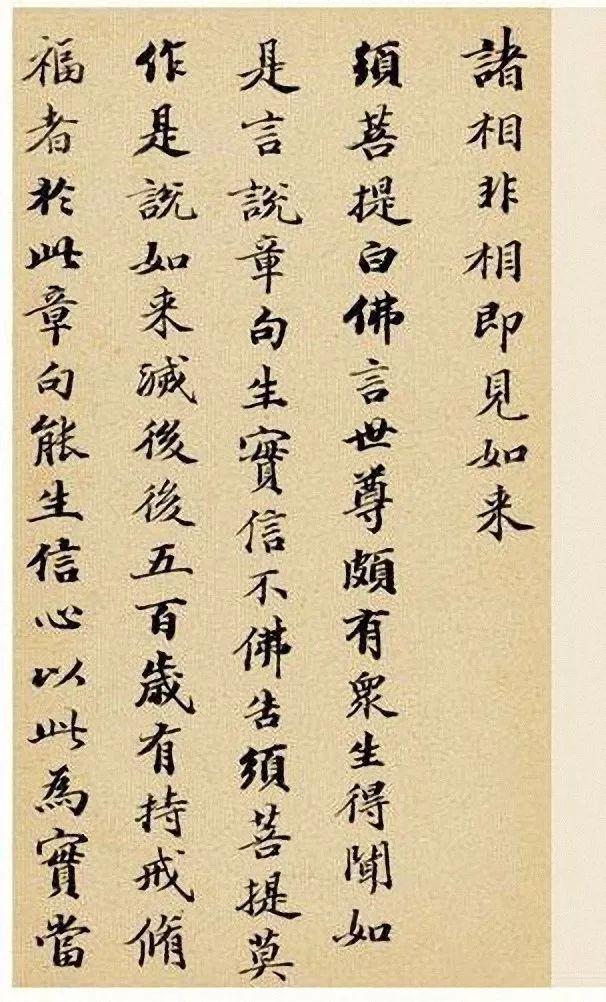 諸相非相即見如来
須菩提白佛言世尊頗有衆生得聞如
是言説章句生實信不佛告須菩提莫
作是説如来滅後後五百歲有持戒脩
福者於此章句能生信心以此為實當